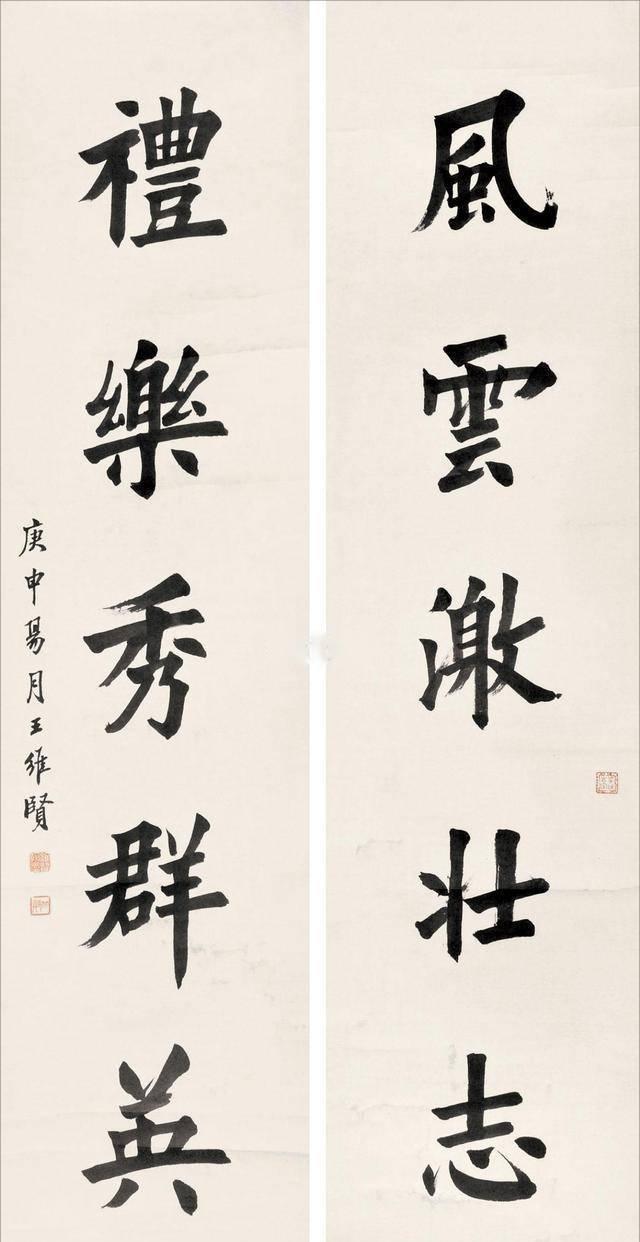 風雲激壯志
禮樂秀群英
庚申昜月王維賢